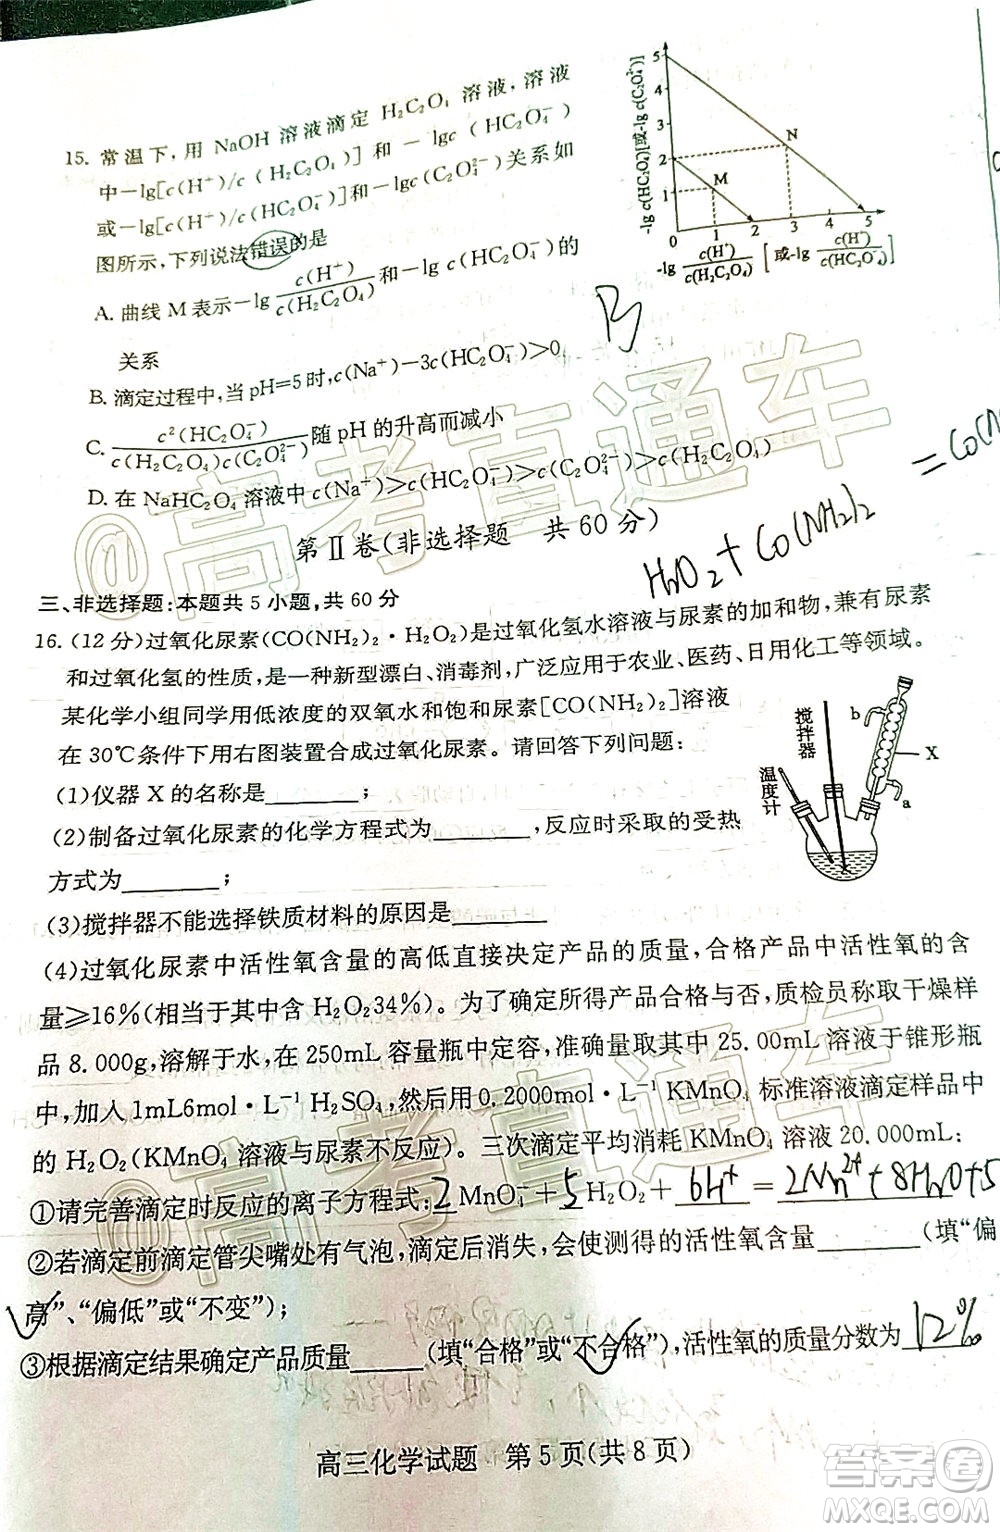 15. 常温下,用 NaOH 溶液滴定 H₂C₂O₄ 溶液,溶液
中-lg[c(H⁺)/c(H₂C₂O₄)]和-lgc(HC₂O₄⁻)
或-lg[c(H⁺)/c(HC₂O₄⁻)]和-lgc(C₂O₄²⁻)关系如
图所示,下列说法错误的是
A. 曲线 M 表示-lg c(H⁺)/c(H₂C₂O₄) 和-lgc(HC₂O₄⁻)的
关系
B. 滴定过程中,当 pH=5 时,c(Na⁺)-3c(HC₂O₄⁻)>0
C. c²(HC₂O₄⁻)/c(H₂C₂O₄)c(C₂O₄²⁻) 随 pH 的升高而减小
D. 在 NaHC₂O₄ 溶液中 c(Na⁺)>c(HC₂O₄⁻)>c(C₂O₄²⁻)>c(H₂C₂O₄)
-lg c(HC₂O₄⁻)[或-lg c(C₂O₄²⁻)]
5
4
3
2
1
0
1 2 3 4 5
N
M
-lg c(H⁺)/c(H₂C₂O₄) [或-lg c(H⁺)/c(HC₂O₄⁻)]
B
第Ⅱ卷(非选择题 共 60 分)
H₂O₂ + CO(NH₂)₂
= CO(N
三、非选择题:本题共 5 小题,共 60 分
16. (12 分)过氧化尿素(CO(NH₂)₂·H₂O₂)是过氧化氢水溶液与尿素的加和物,兼有尿素
和过氧化氢的性质,是一种新型漂白、消毒剂,广泛应用于农业、医药、日用化工等领域。
某化学小组同学用低浓度的双氧水和饱和尿素[CO(NH₂)₂]溶液
在 30℃条件下用右图装置合成过氧化尿素。请回答下列问题:
(1)仪器 X 的名称是______;
(2)制备过氧化尿素的化学方程式为______,反应时采取的受热
方式为______;
搅拌器
温度计
b
X
a
(3)搅拌器不能选择铁质材料的原因是______
(4)过氧化尿素中活性氧含量的高低直接决定产品的质量,合格产品中活性氧的含
量≥16%(相当于其中含 H₂O₂34%)。为了确定所得产品合格与否,质检员称取干燥样
品 8.000g,溶解于水,在 250mL 容量瓶中定容,准确量取其中 25.00mL 溶液于锥形瓶
中,加入 1mL6mol·L⁻¹ H₂SO₄,然后用 0.2000mol·L⁻¹ KMnO₄ 标准溶液滴定样品中
的 H₂O₂(KMnO₄ 溶液与尿素不反应)。三次滴定平均消耗 KMnO₄ 溶液 20.000mL:
①请完善滴定时反应的离子方程式:2MnO₄⁻+5H₂O₂+6H⁺=2Mn²⁺+8H₂O+5
②若滴定前滴定管尖嘴处有气泡,滴定后消失,会使测得的活性氧含量______(填“偏
高”、“偏低”或“不变”);
③根据滴定结果确定产品质量______(填“合格”或“不合格”),活性氧的质量分数为 12%
高三化学试题 第 5 页(共 8 页)
@高考直通车
@高考直通车
答案卷
MXQE.COM